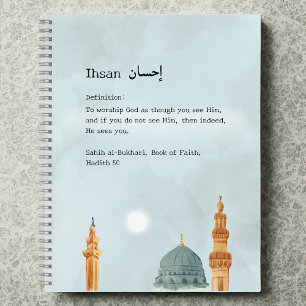 Ihsan إحسان
Definition:
To worship God as though you see Him,
and if you do not see Him, then indeed,
He sees you.
Sahih al-Bukhari, Book of Faith,
Hadith 50